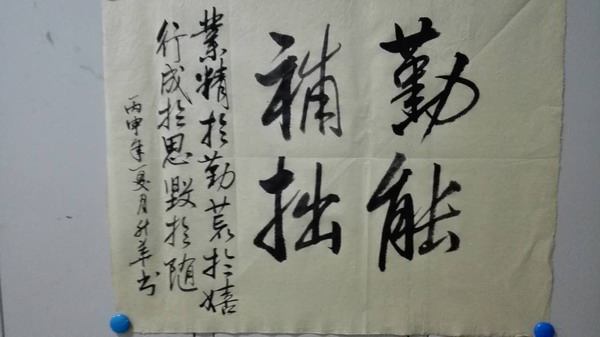 勤能
補拙
業精於勤荒於嬉
行成於思毀於随
丙申年夏月升羊书